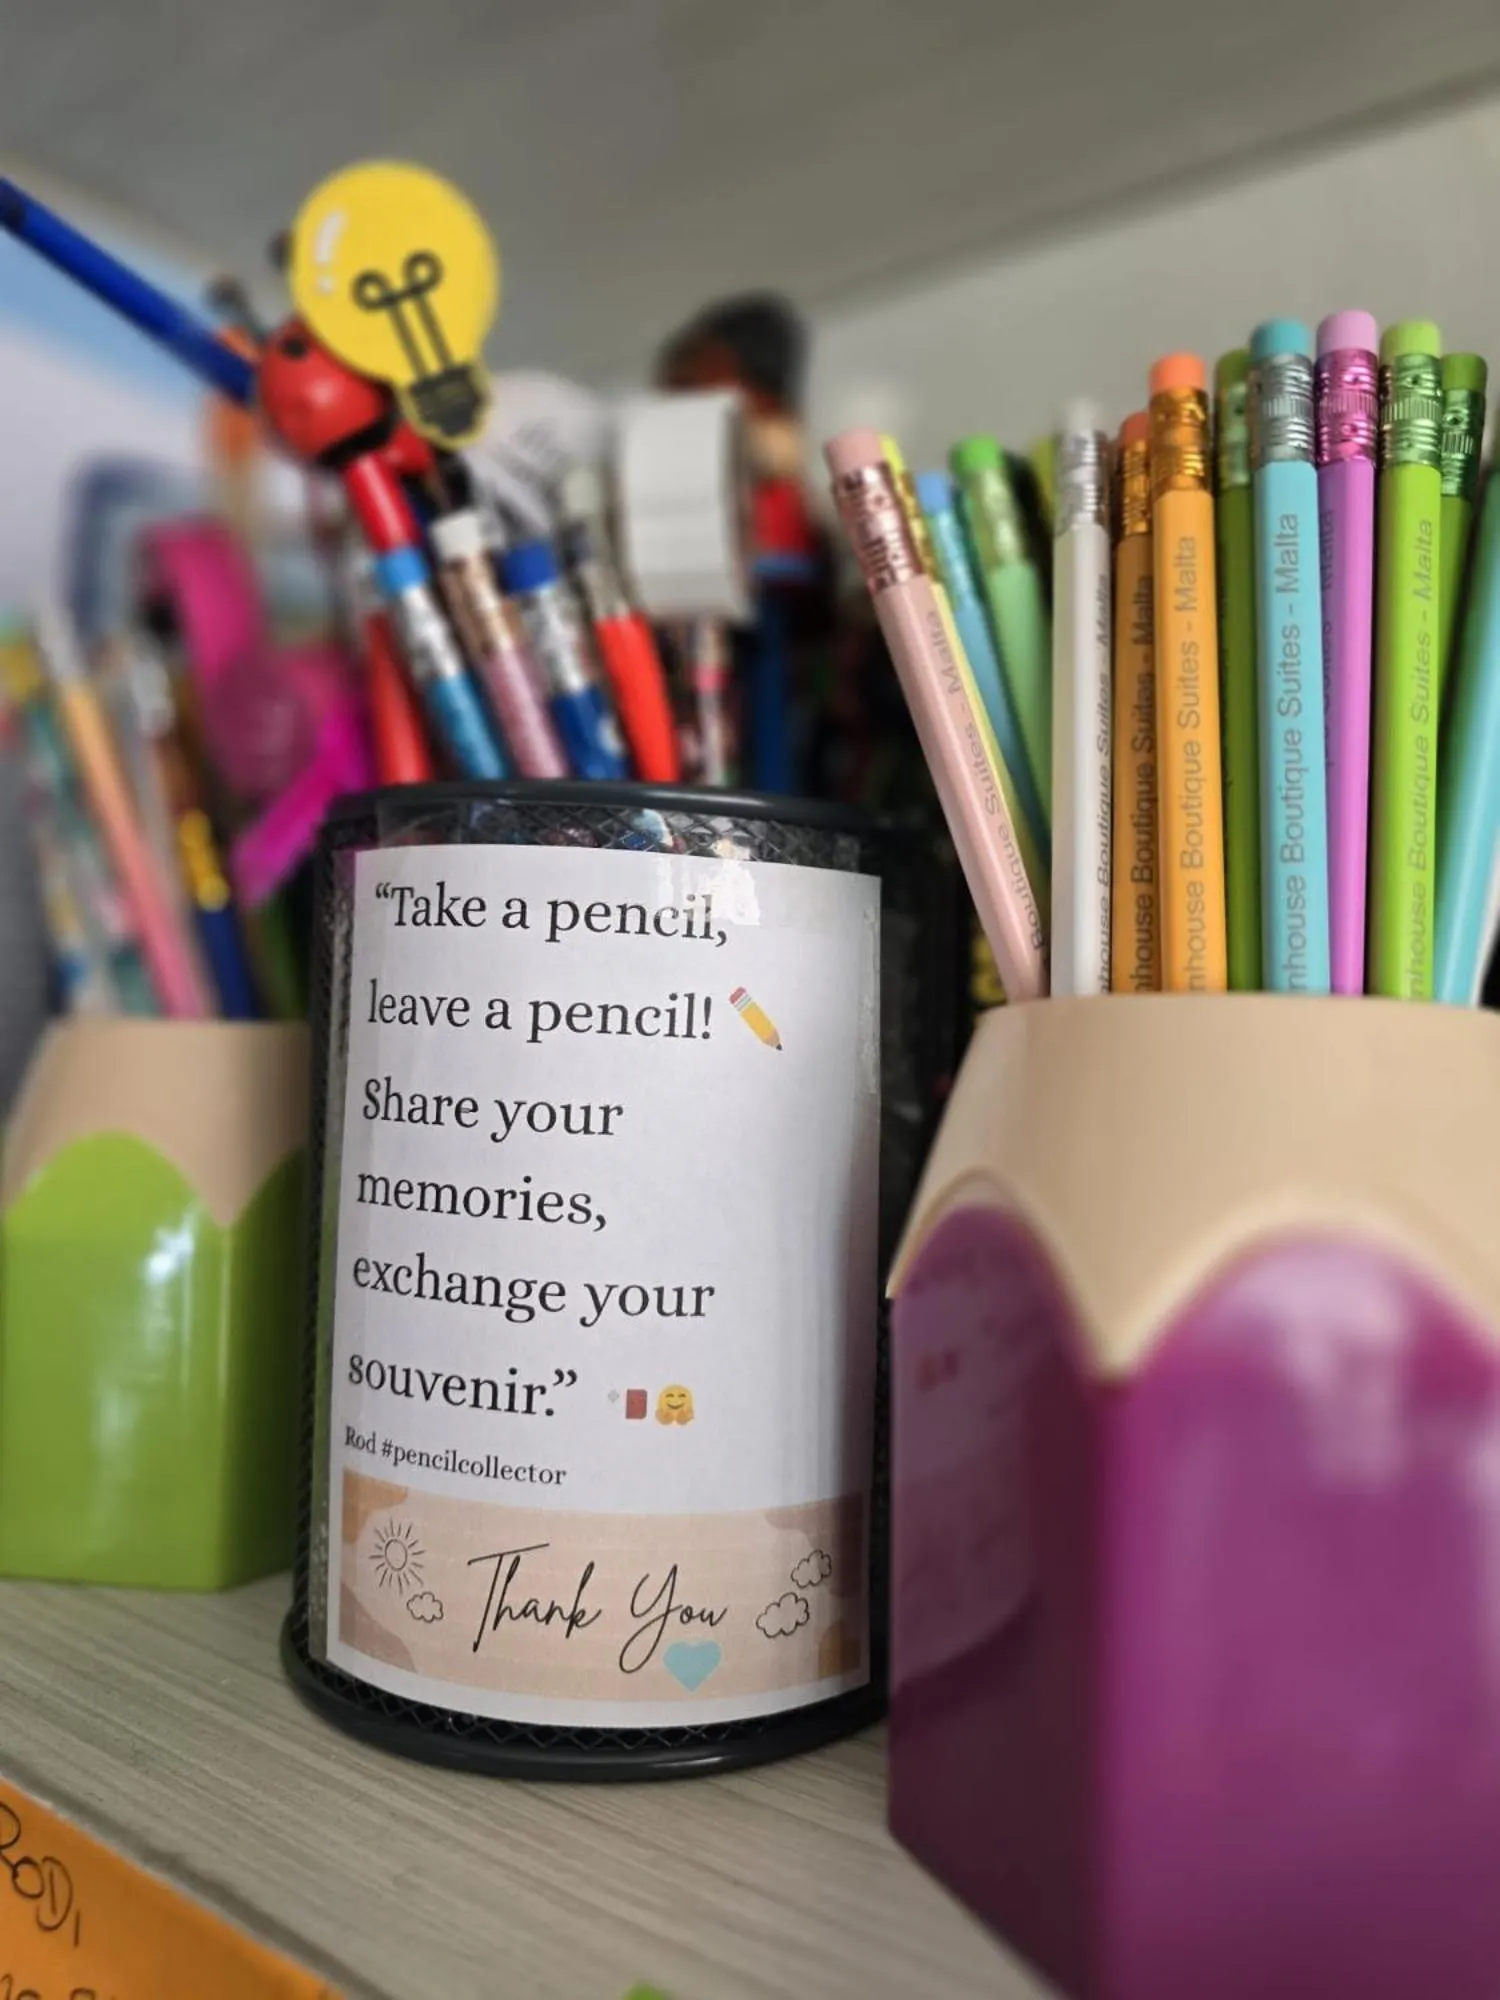 “Take a pencil,
leave a pencil!
Share your
memories,
exchange your
souvenir.”
Rod #pencilcollector
Thank You
Boutique Suites - Malta
nhouse Boutique Suites - Malta
nhouse Boutique Suites - Malta
nhouse Boutique Suites - Malta
nhouse Boutique Suites - Malta
nhouse Boutique Suites - Malta
ROD,